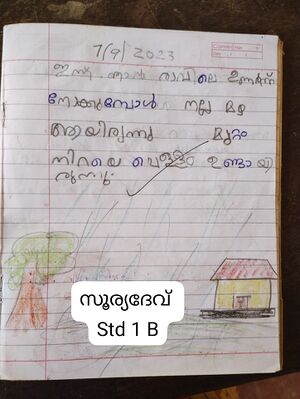 7/9/2023
ഇന്ന് ഞാൻ രാവിലെ ഉണർന്ന്
നോക്കുമ്പോൾ നല്ല മഴ
ആയിരുന്നു മുറ്റം
നിറയെ വെള്ളം ഉണ്ടായി
രുന്നു.
സൂര്യദേവ്
Std 1 B